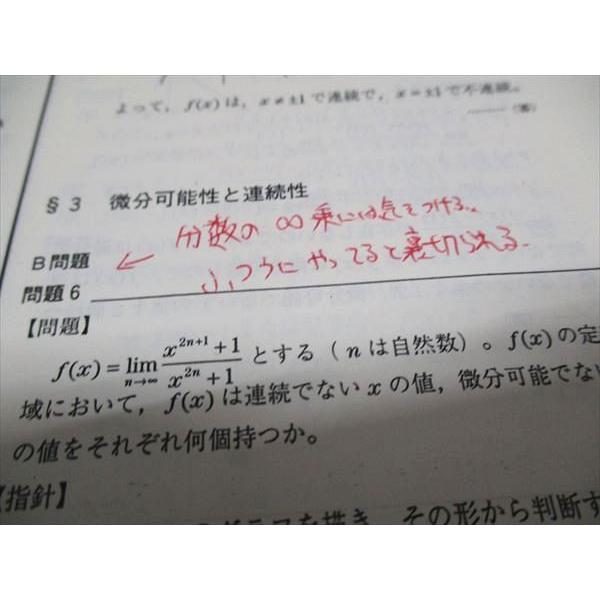 よって, f(x) は, x≠±1 で連続で, x=±1 で不連続。
……(答)
§3 微分可能性と連続性
分数の∞乗には気をつける。
B問題 ←
ふつうにやってると裏切られる。
問題6
【問題】
f(x)=lim_{n→∞} \frac{x^{2n+1}+1}{x^{2n}+1} とする(nは自然数)。f(x)の定
域において, f(x)は連続でないxの値, 微分可能でな
の値をそれぞれ何個持つか。
【指針】
のグラフを描き, その形から判断す